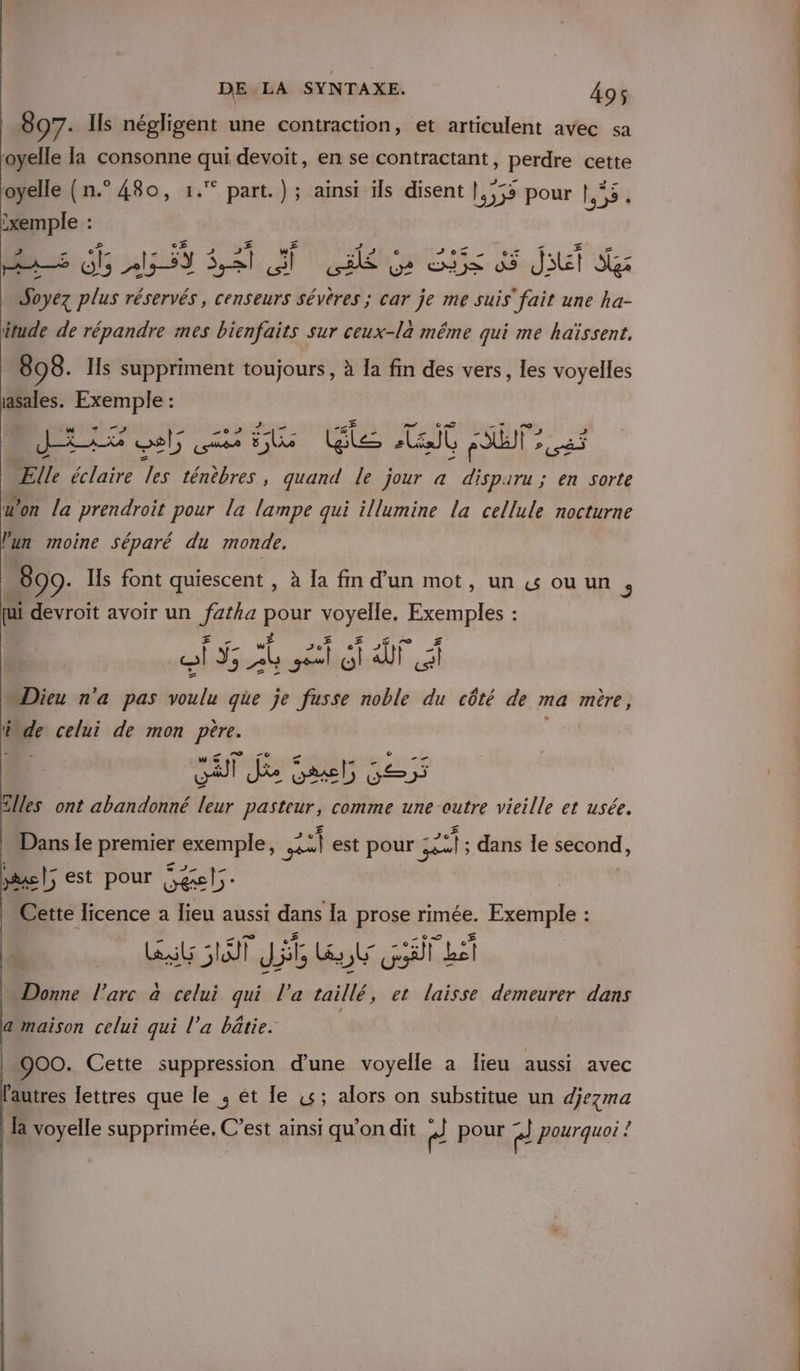 DE LA SYNTAXE. 495
897. Ils négligent une contraction, et articulent avec sa
oyelle la consonne qui devoit, en se contractant, perdre cette
oyelle (n.º 480, 1.re part.); ainsi ils disent pour
xemple :
مهلا أعاذل قد جربت من خلقى أنى أجود لأقوام وإن
Soyez plus réservés, censeurs sévères; car je me suis fait une ha-
itude de répandre mes bienfaits sur ceux-là même qui me haïssent.
898. Ils suppriment toujours, à la fin des vers, les voyelles
asales. Exemple :
تضىء الظلام بالعشاء كأنها منارة ممسى راهب متبتل
Elle éclaire les ténèbres, quand le jour a disparu; en sorte
u'on la prendroit pour la lampe qui illumine la cellule nocturne
'un moine séparé du monde.
899. Ils font quiescent, à la fin d'un mot, un ى ou un و
ui devroit avoir un fatha pour voyelle. Exemples :
أبى الله أن أسمو بأم ولا أب
Dieu n'a pas voulu que je fusse noble du côté de ma mère,
i de celui de mon père.
تركن راعيهن مثل الشن
lles ont abandonné leur pasteur, comme une outre vieille et usée.
Dans le premier exemple, أسمو est pour أسمو; dans le second,
راعيهن est pour راعيهن.
Cette licence a lieu aussi dans la prose rimée. Exemple :
أعط القوس باريها وأنزل الدار بانيها
Donne l'arc à celui qui l'a taillé, et laisse demeurer dans
a maison celui qui l'a bâtie.
900. Cette suppression d'une voyelle a lieu aussi avec
'autres lettres que le و et le ى; alors on substitue un djezma
la voyelle supprimée. C'est ainsi qu'on dit لِمْ pour لِمَ pourquoi !